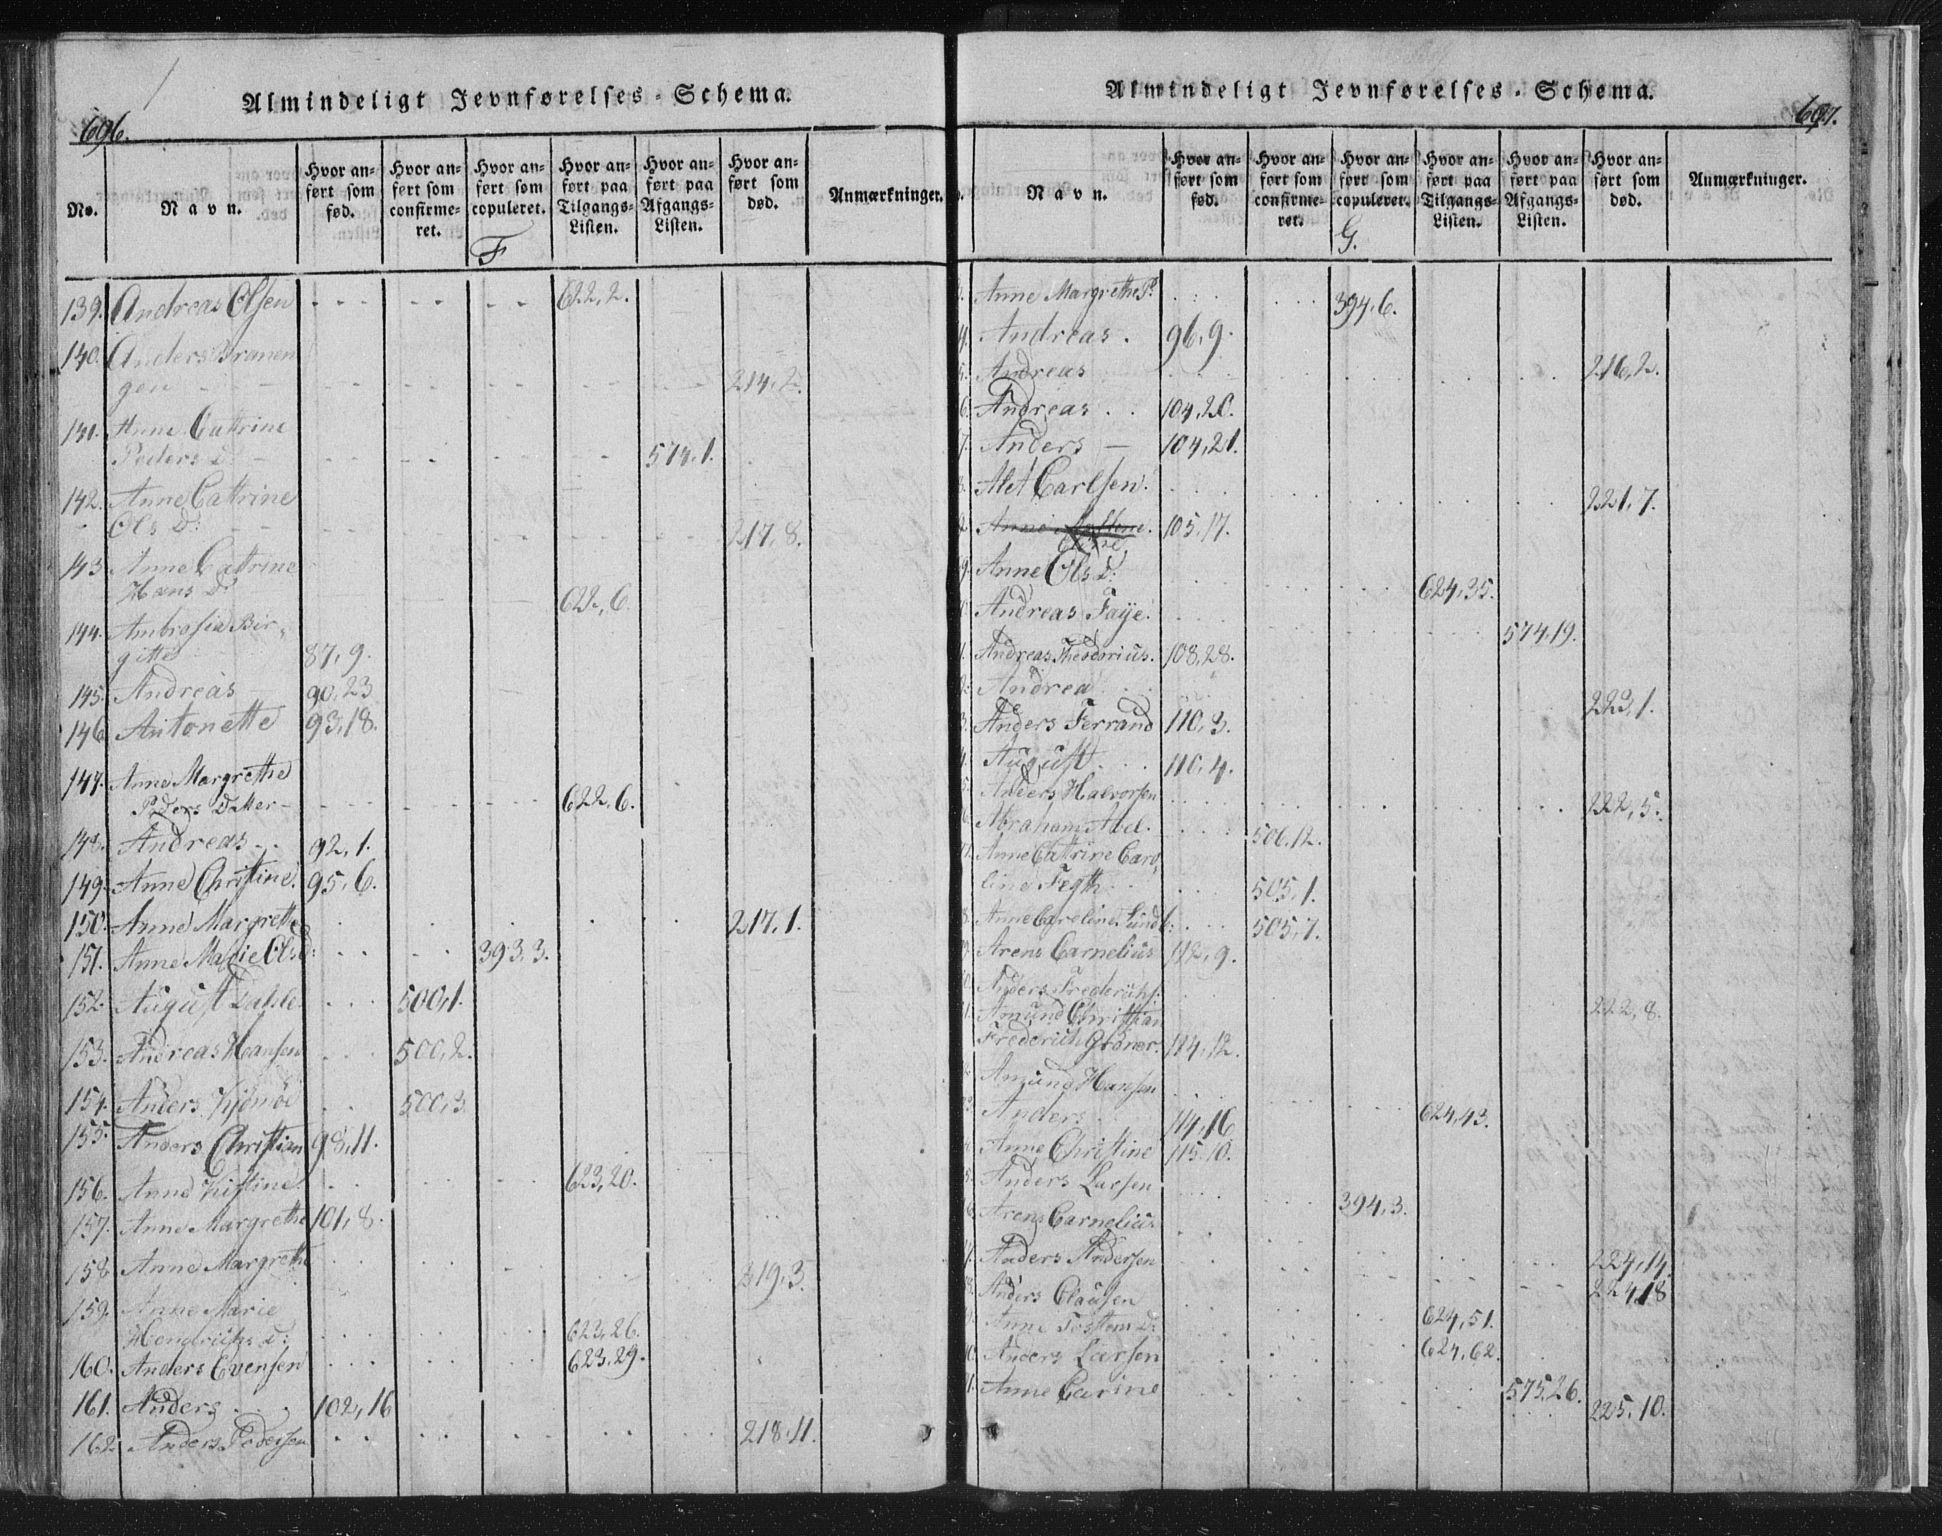 Almindeligt Jevnførelses-Schema.
696.
No.
Navn.
Hvor anført som fød.
Hvor anført som confirmeret.
Hvor anført som copuleret.
Hvor anført paa Tilgangs-Listen.
Hvor anført paa Afgangs-Listen.
Hvor anført som død.
Anmærkninger.
F
139. Andreas Olsen 622,2.
140. Anders
gen 214,2.
141. Anne Cattrine
Peders D: 574,1.
142. Anne Cattrine
Ols D: 217,8.
143. Anne Catrine
Hans D: 622,6.
144. Ambrosia Bir-
gitte 87,9.
145. Andreas 90,23
146. Antonette 93,18.
147. Anne Margrethe
Peders Datter 622,6.
148. Andreas 92,1.
149. Anne Christine. 95,6.
150. Anne Margrethe 217,1.
151. Anne Marie Olsd: 393,3.
152. August Dahle 500,1.
153. Andreas Hansen 500,2.
154. Anders 500,3.
155. Anders Christian 98,11.
156. Anne Kistine 623,20.
157. Anne Margrethe 101,8.
158. Anne Margrethe 219,3.
159. Anne Marie
Hendrichs D: 623,26.
160. Anders Evensen 623,29.
161. Anders 102,16
162. Anders Pedersen 218,11.
Almindeligt Jevnførelses-Schema.
697.
Navn.
Hvor anført som fød.
Hvor anført som confirmeret.
Hvor anført som copuleret.
Hvor anført paa Tilgangs-Listen.
Hvor anført paa Afgangs-Listen.
Hvor anført som død.
Anmærkninger.
G.
3. Anne Margrethe P: 394,6.
4. Andreas. 96,9.
5. Andreas 216,2.
6. Andreas 104,20.
7. Anders 104,21.
8. Alet Carlsen. 221,7.
Anne 105,17.
9. Anne Ols D: 624,35.
Andreas Faye. 574,19.
1. Andreas Theodorius. 108,28.
2. Andrea 223,1.
3. Anders Ferrand 110,3.
4. August 110,4.
5. Anders Halvorsen 222,5.
6. Abraham Abel. 506,12.
7. Anne Cattrine Caro-
line Fegth 505,1.
8. Anne Caroline Lund 505,7.
9. Arens Carnelius 112,9.
Anders Frederichs: 222,8.
1. Amund Christian
Frederich Grøner. 114,12.
2. Amund Hansen 624,43.
3. Anders 114,16
4. Anne Christine 115,10.
5. Anders Larsen 394,3.
6. Arens Carnelius 224,14
7. Anders Andersen 224,18
8. Anders Clausen 624,51.
9. Anne Tostens D: 624,62.
0. Anders Larsen 575,26.
1. Anne Carine 225,10.